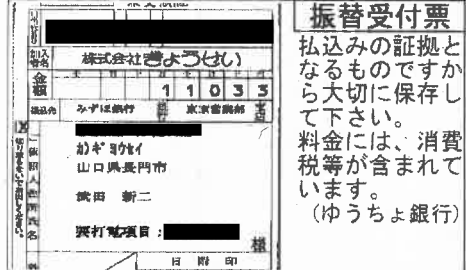 株式会社ぎょうせい
金額
11033
みずほ銀行
東京営業部
カ)ギヨウセイ
山口県長門市
武田 新二
要打電項目:
様
日附印
振替受付票
払込みの証拠と
なるものですか
ら大切に保存し
て下さい。
料金には、消費
税等が含まれて
います。
(ゆうちょ銀行)